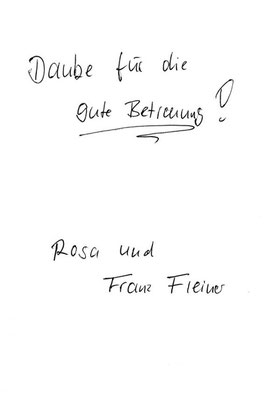 Danke für die
gute Betreuung!
Rosa und
Franz Fleiner